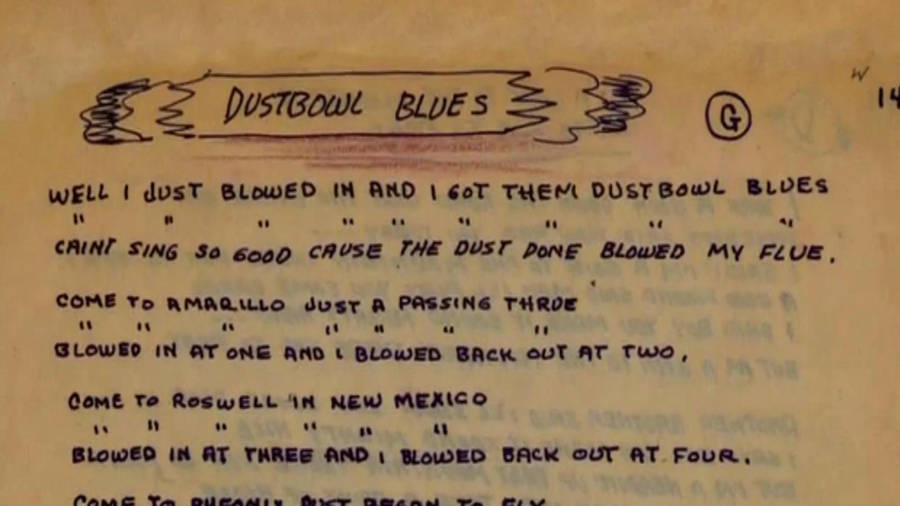 DUSTBOWL BLUES
G
W
14
WELL I JUST BLOWED IN AND I GOT THEM DUSTBOWL BLUES
" " " " " " " " "
CAINT SING SO GOOD CAUSE THE DUST DONE BLOWED MY FLUE.
COME TO AMARILLO JUST A PASSING THRUE
" " " " " " "
BLOWED IN AT ONE AND I BLOWED BACK OUT AT TWO.
COME TO ROSWELL IN NEW MEXICO
" " " " " "
BLOWED IN AT THREE AND I BLOWED BACK OUT AT FOUR.
COME TO PHEONIX JUST BEGAN TO FLY